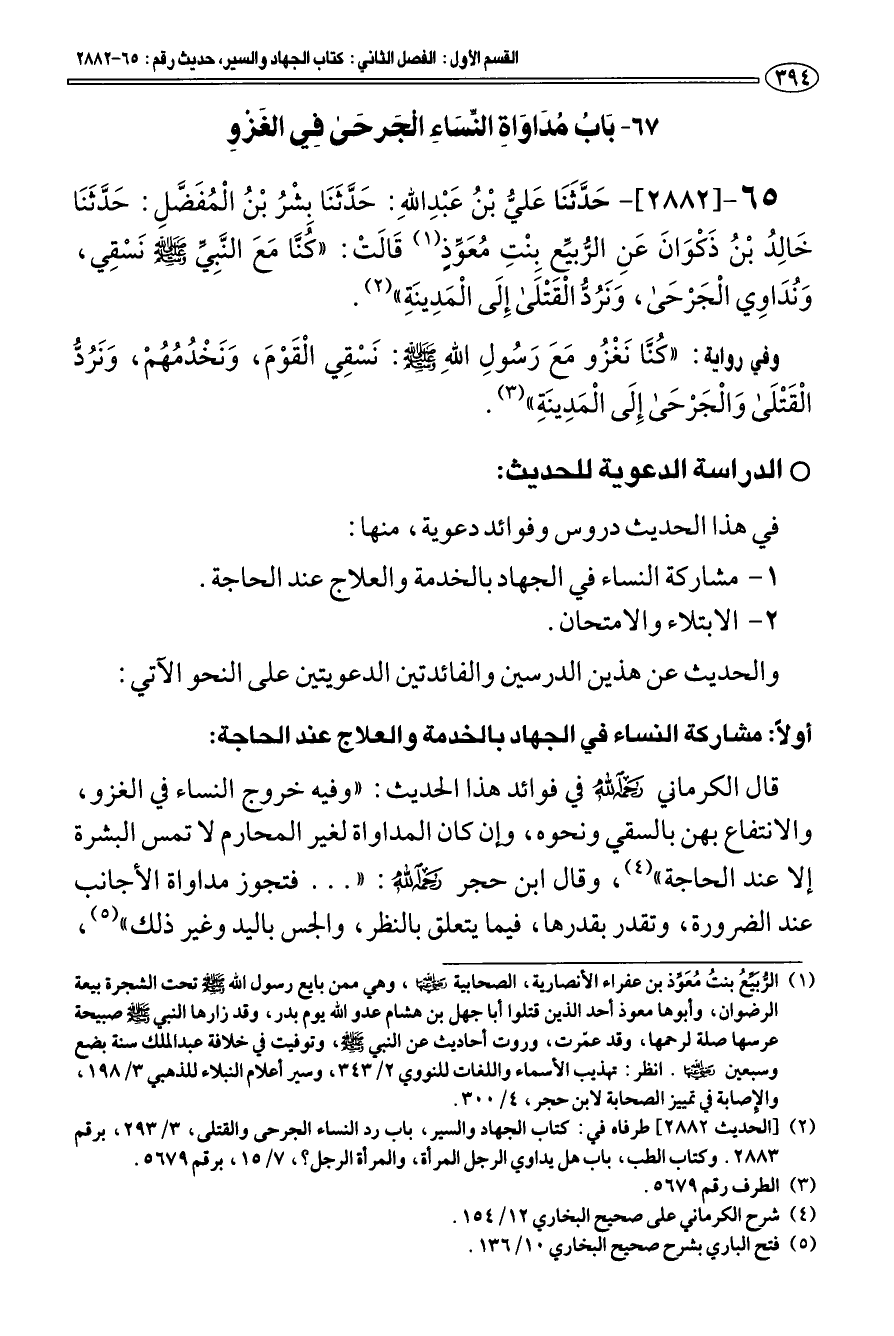 القسم الأول: الفصل الثاني: كتاب الجهاد والسير، حديث رقم: ٦٥-٢٨٨٢
٣٩٤
٦٧- بَابُ مُدَاوَاةِ النِّسَاءِ الْجَرحَىٰ فِي الغَزْوِ
٦٥-[٢٨٨٢]- حَدَّثَنَا عَليُّ بْنُ عَبْدِاللهِ: حَدَّثَنَا بِشْرُ بْنُ الْمُفَضَّلِ: حَدَّثَنَا
خَالِدُ بْنُ ذَكْوَانَ عَنِ الرُّبيِّعِ بِنْتِ مُعَوِّذٍ(١) قَالَتْ: «كُنَّا مَعَ النَّبيِّ ﷺ نَسْقِي،
وَنُدَاوِي الْجَرْحَىٰ، وَنَرُدُّ الْقَتْلَىٰ إِلَى الْمَدِينَةِ»(٢).
وفي رواية: «كُنَّا نَغْزُو مَعَ رَسُولِ اللهِ ﷺ: نَسْقِي الْقَوْمَ، وَنَخْدُمُهُمْ، وَنَرُدُّ
الْقَتْلَىٰ وَالْجَرْحَىٰ إِلَى الْمَدِينَةِ»(٣).
○ الدراسة الدعوية للحديث:
في هذا الحديث دروس وفوائد دعوية، منها:
١- مشاركة النساء في الجهاد بالخدمة والعلاج عند الحاجة.
٢- الابتلاء والامتحان.
والحديث عن هذين الدرسين والفائدتين الدعويتين على النحو الآتي:
أولاً: مشاركة النساء في الجهاد بالخدمة والعلاج عند الحاجة:
قال الكرماني رَحِمَهُ اللهُ في فوائد هذا الحديث: «وفيه خروج النساء في الغزو،
والانتفاع بهن بالسقي ونحوه، وإن كان المداواة لغير المحارم لا تمس البشرة
إلا عند الحاجة»(٤)، وقال ابن حجر رَحِمَهُ اللهُ: «... فتجوز مداواة الأجانب
عند الضرورة، وتقدر بقدرها، فيما يتعلق بالنظر، والجس باليد وغير ذلك»(٥)،
(١) الرُّبَيِّعُ بنتُ مُعَوِّذ بن عفراء الأنصارية، الصحابية رضي الله عنها، وهي ممن بايع رسول الله ﷺ تحت الشجرة بيعة
الرضوان، وأبوها معوذ أحد الذين قتلوا أبا جهل بن هشام عدو الله يوم بدر، وقد زارها النبي ﷺ صبيحة
عرسها صلة لرحمها، وقد عمّرت، وروت أحاديث عن النبي ﷺ، وتوفيت في خلافة عبدالملك سنة بضع
وسبعين رضي الله عنها. انظر: تهذيب الأسماء واللغات للنووي ٢/ ٣٤٣، وسير أعلام النبلاء للذهبي ٣/ ١٩٨،
والإصابة في تمييز الصحابة لابن حجر، ٤/ ٣٠٠.
(٢) [الحديث ٢٨٨٢] طرفاه في: كتاب الجهاد والسير، باب رد النساء الجرحى والقتلى، ٣/ ٢٩٣، برقم
٢٨٨٣. وكتاب الطب، باب هل يداوي الرجل المرأة، والمرأة الرجل؟، ٧/ ١٥، برقم ٥٦٧٩.
(٣) الطرف رقم ٥٦٧٩.
(٤) شرح الكرماني على صحيح البخاري ١٢/ ١٥٤.
(٥) فتح الباري بشرح صحيح البخاري ١٠/ ١٣٦.